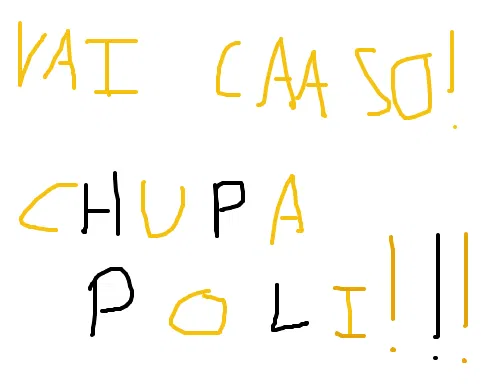 VAI CAASO!
CHUPA
POLI!!!